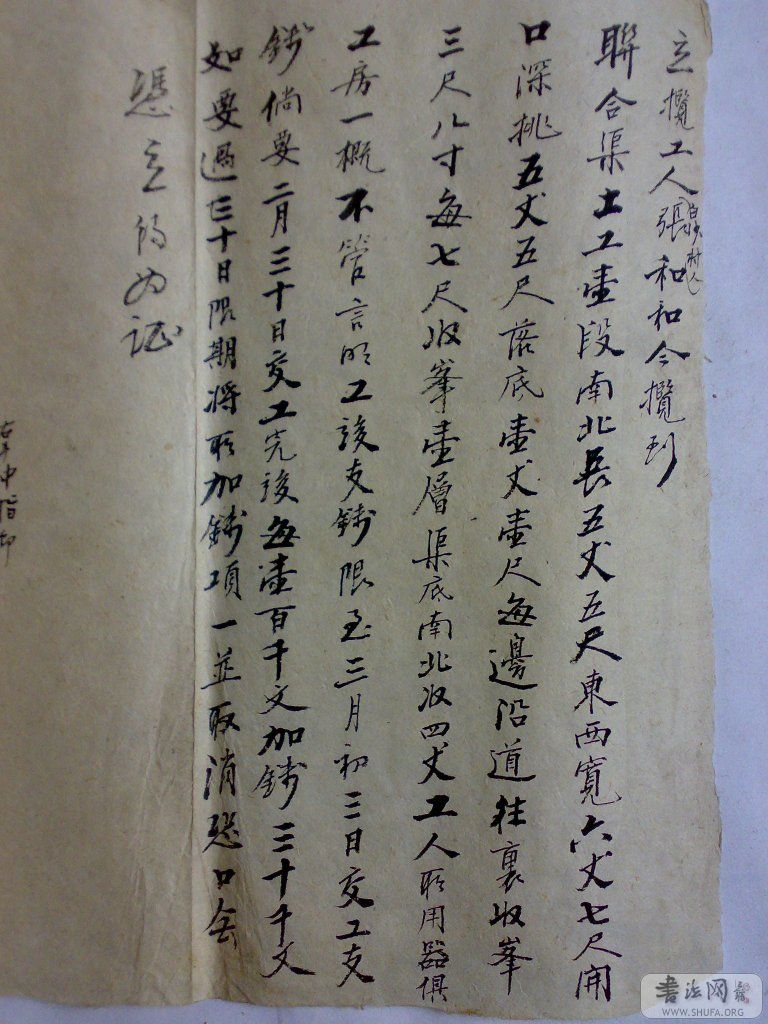 立攬工人張和和今攬到
白沙村人
聯合渠土工壹段南北長五丈五尺東西寬六丈七尺開
口深挑五丈五尺落底壹丈壹尺每邊沿道往裏收峯
三尺八寸每七尺收峯壹層渠底南北收四丈工人所用器俱
工房一概不管言明工竣支錢限至三月初三日交工支
錢倘要二月三十日交工完竣每壹百千文加錢三十千文
如要過三十日限期將所加錢項一並取消恐口無
憑立約為証
右手中指印
書法网
WWW.SHUFA.ORG